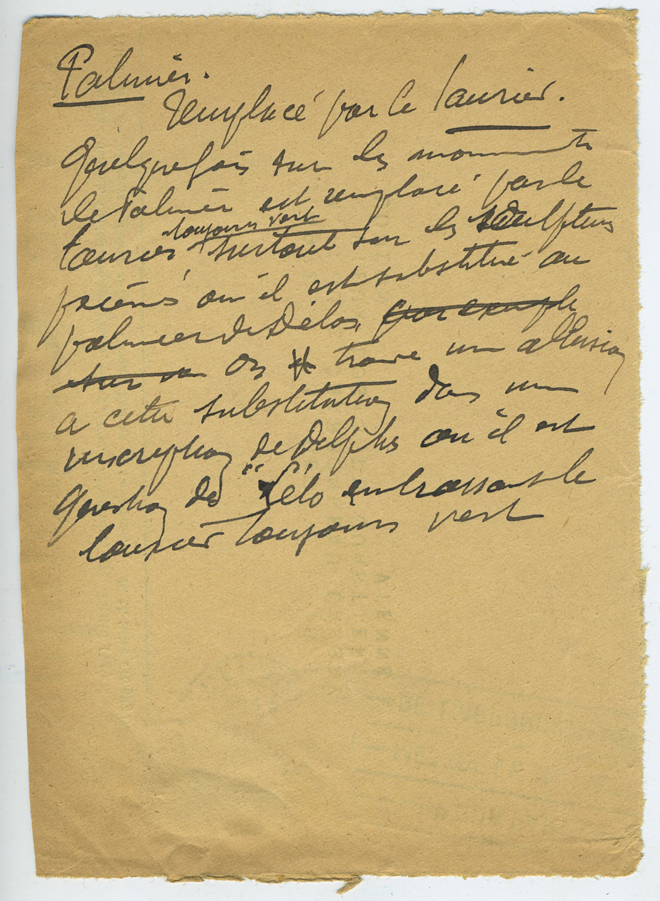 Palmier.
Remplacé par le laurier.
Quelquefois sur les monuments
le Palmier est remplacé par le
toujours vert
laurier surtout sur les sculptures
où il est substitué au
palmier de Délos, par exemple
sur un On trouve une allusion
à cette substitution dans une
inscription de Delphes où il est
question de "Léto embrassant le
laurier toujours vert